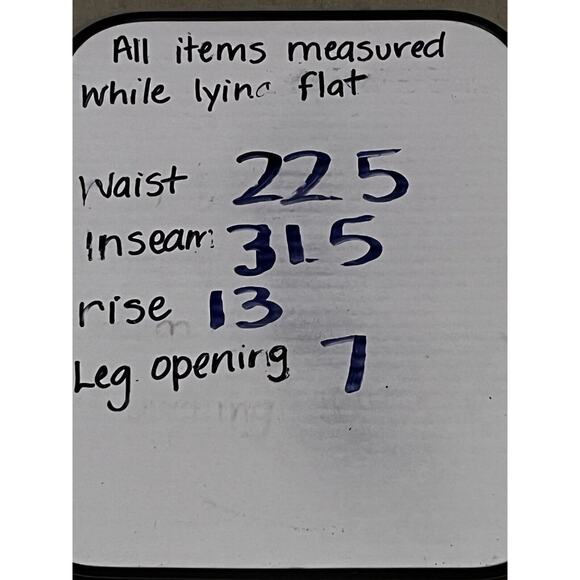 All items measured
while lying flat
Waist 22.5
Inseam: 31.5
rise 13
Leg opening 7